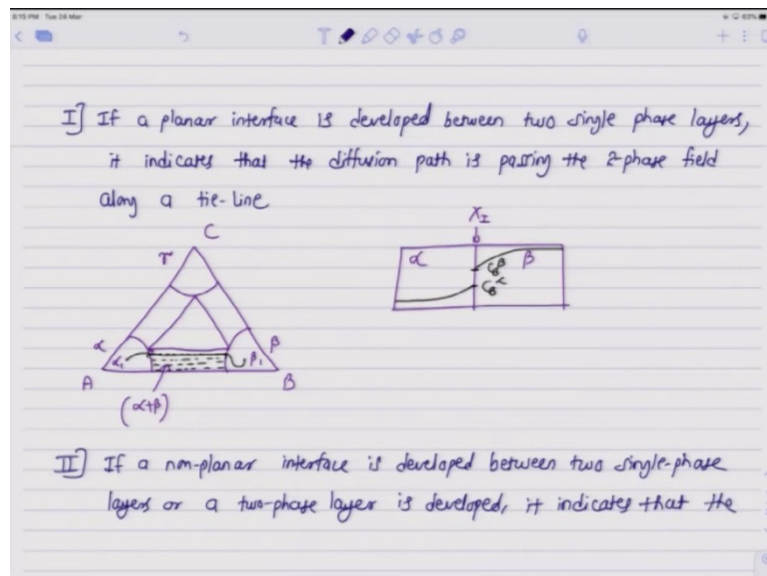 8:15 PM Tue 24 Mar
63%
I] If a planar interface is developed between two single phase layers,
it indicates that the diffusion path is passing the 2-phase field
along a tie-line
C
X_I
γ
α β
C_B^β
C_B^α
α β
α₁ β₁
A B
(α+β)
II] If a non-planar interface is developed between two single-phase
layers or a two-phase layer is developed, it indicates that the